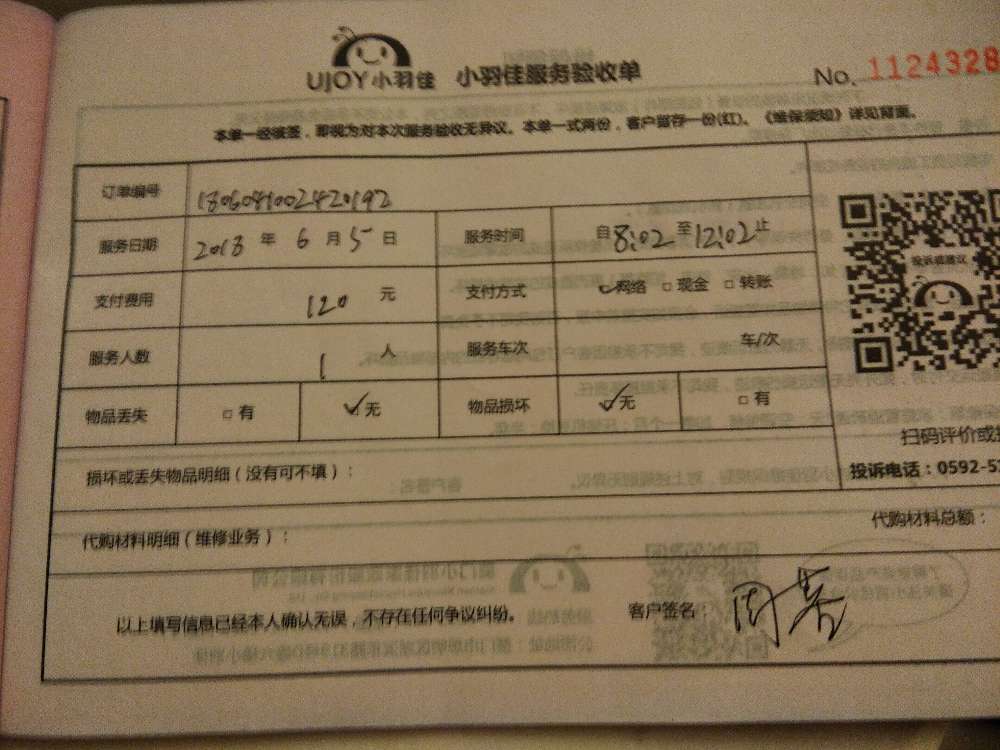 UJOY小羽佳 小羽佳服务验收单 No. 1124328
本单一经被签，即视为对本次服务验收无异议。本单一式两份，客户留存一份(红)。《维保须知》详见背面。
订单编号 1806041002420192
服务日期 2018 年 6 月 5 日 服务时间 自 8:02 至 12:02 止
支付费用 120 元 支付方式 ✓网络 □现金 □转账
服务人数 1 人 服务车次 车/次
物品丢失 □有 ✓无 物品损坏 ✓无 □有
投诉或建议
扫码评价或
投诉电话：0592-5
损坏或丢失物品明细（没有可不填）：
代购材料明细（维修业务）： 代购材料总额：
以上填写信息已经本人确认无误，不存在任何争议纠纷。 客户签名：